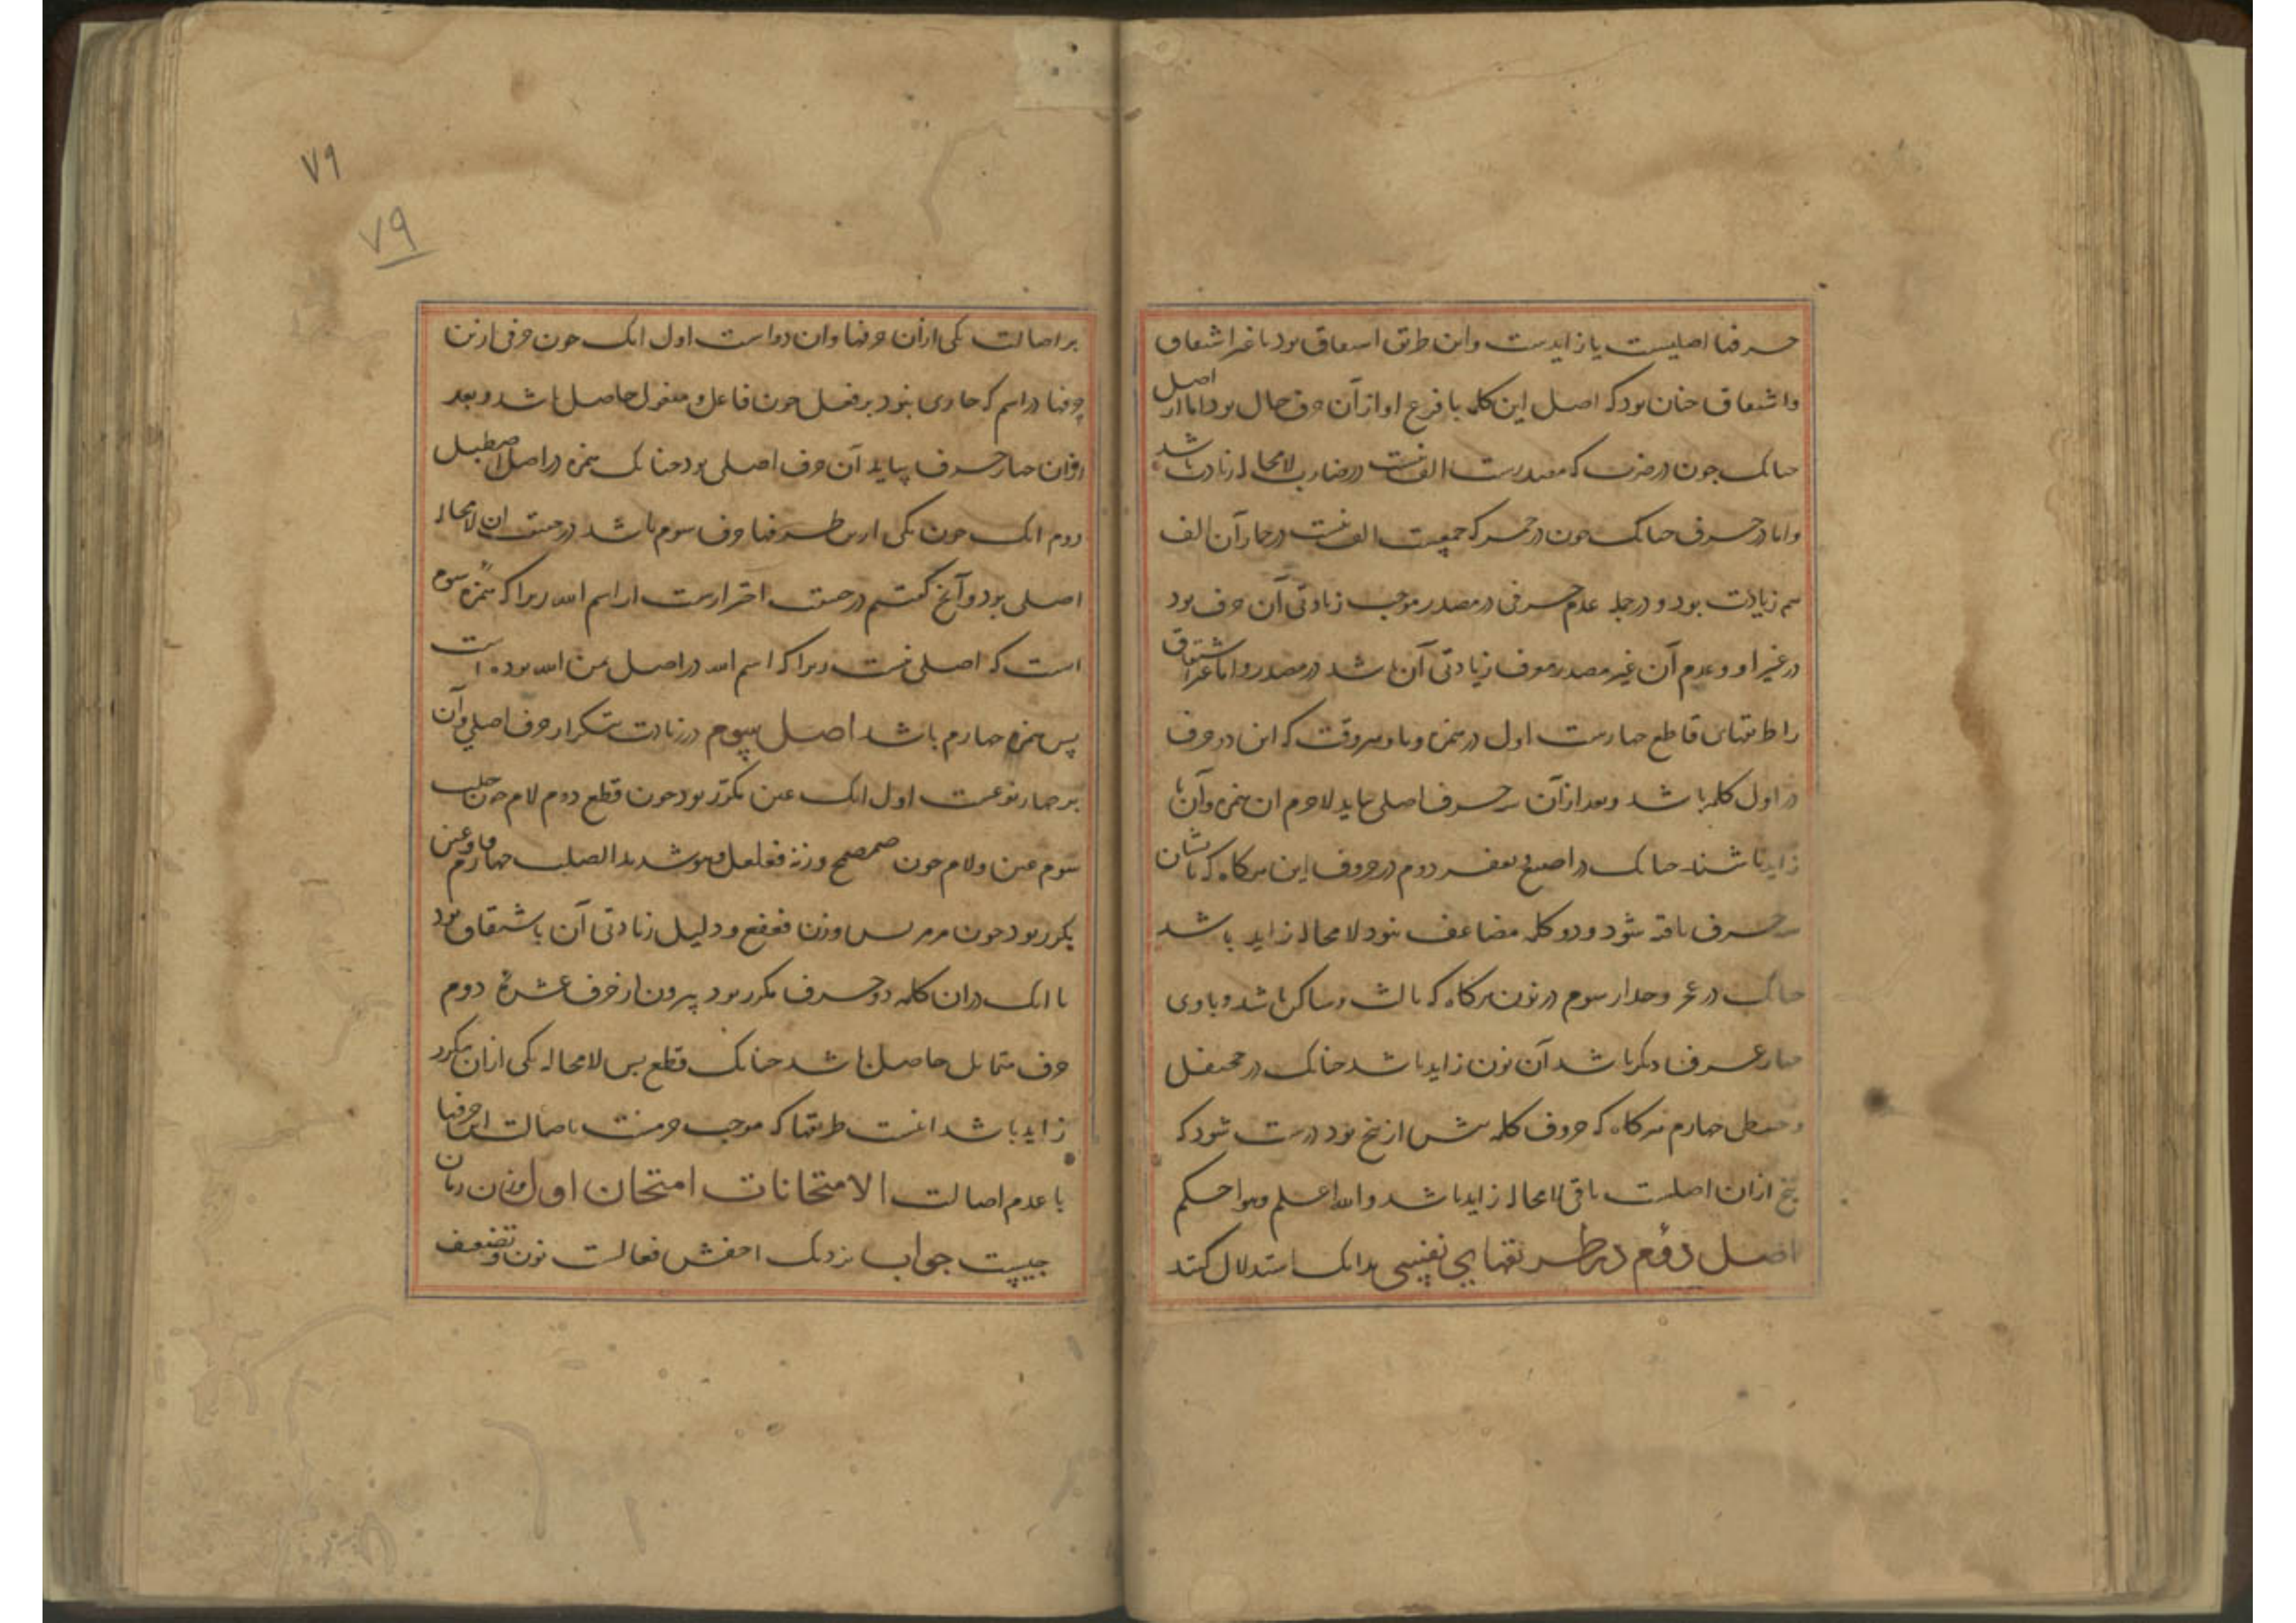 حرفها اصلیست یا زایدست واین طریق اشتقاق بود یا غیر اشتقاق
واشتقاق چنان بود که اصل این کلمه یا فرع او از آن حرف خالی بود اما از اصل
چنانک چون در ضرب که مصدرست الف نیست در ضارب لامحاله زیادت باشد
واما در حرفی چنانک چون در حمر که جمعیت الف نیست در حمار آن الف
هم زیادت بود و در جمله عدم حرفی در مصدر موجب زیادتی آن حرف بود
در غیر او وعدم آن غیر مصدر معرف زیادتی آن باشد در مصدر واما غیر اشتقاق
را طریقهای قاطع چهارست اول در همزه ویا وهر وقت که این دو حرف
در اول کلمه باشد وبعد از آن سه حرف اصلی بیاید لاجرم ان همزه وآن یا
زاید باشند چنانک در اصبع ویعفر دوم در حروف لین هرکاه که باایشان
سه حرف یافته شود و دو کلمه مضاعف نبود لامحاله زاید باشد
چنانک در وجدار سوم در نون هرکاه که ثالث وساکن باشد وبا وی
چهار حرف دیکر باشد آن نون زاید باشد چنانک در جحنفل
وحنطی چهارم هرکاه که حروف کلمه بیش از پنج بود درست شود که
پنج ازان اصلیست باقی لامحاله زاید باشد والله اعلم وهو احکم
اصل دوم در طریقهای نفیسی بدانک استدلال کنند
۷۹
۷۹
بر اصالت یکی از آن حرفها وان دو است اول انک چون حرفی از این
حرفها در اسم که جاری نبود بر فعل چون فاعل ومفعول حاصل باشد وبعد
از ان چهار حرف بیاید آن حرف اصلی بود چنانک همزه در اصل اصطبل
دوم انک چون یکی از این حرفها حرف سوم باشد در حقیقت ان لامحاله
اصلی بود وآنچ کفتیم در حقیقت احترازست از ایم الله زیرا که همزه سوم
است که اصلی نیست زیرا که ایم الله در اصل ایمن الله بوده است
پس همزه چهارم باشد اصل سوم در زیادت بتکرار حرف اصلی وآن
بر چهار نوعست اول انک عین مکرر بود چون قطع دوم لام چون جلبب
سوم عین ولام چون صمحمح وزنه فعلعل وهو شدید الصلب چهارم فا وعین
مکرر بود چون مرمریس وزن فعفع ودلیل زیادتی آن باشتقاق بود
یا انک دران کلمه دو حرف مکرر بود بیرون از حرف عشره دوم
حرف متماثل حاصل باشد چنانک قطع پس لامحاله یکی ازان مکرر
زاید باشد اینست طریقها که موجب جزمست باصالت این حرفها
یا عدم اصالت الامتحانات امتحان اول وزن رمان
چیست جواب نزدیک اخفش فعالست نون وتضعیف